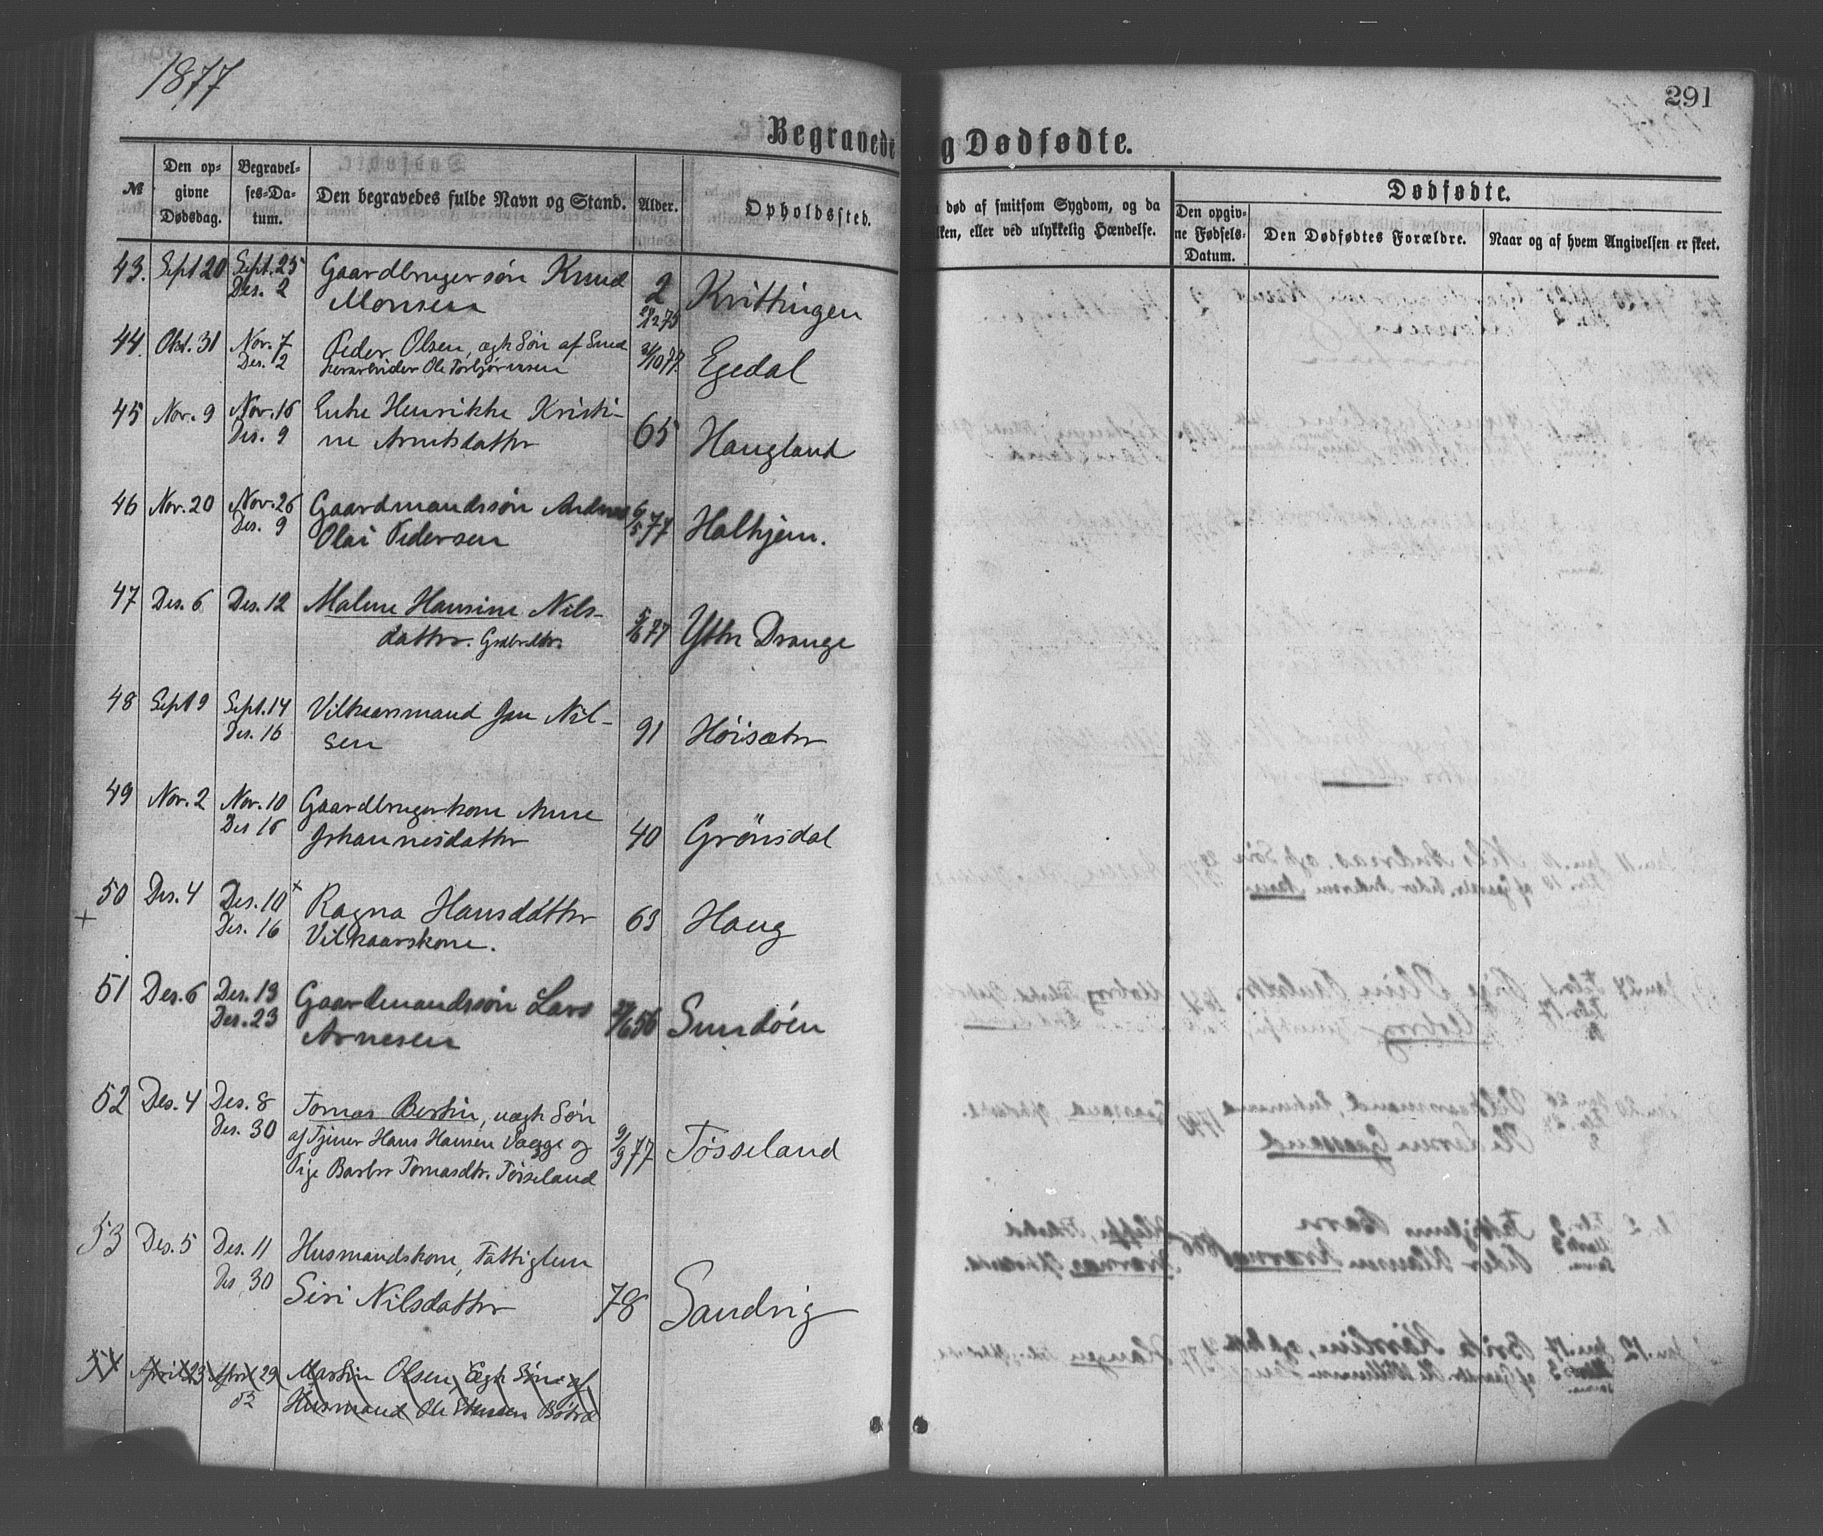 1877
291
Begravede
g Dødfødte.
№
Den op-
givne
Dødsdag.
Begravel-
ses-Da-
tum.
Den begravedes fulde Navn og Stand.
Alder.
Opholdssted.
død af smitsom Sygdom, og da
lken, eller ved ulykkelig Hændelse.
Dødfødte.
Den opgiv-
ne Fødsels-
Datum.
Den Dødfødtes Forældre.
Naar og af hvem Angivelsen er skeet.
43. Sept 20 Sept. 25 Gaardbrugersøn Knud 2
Des. 2 Monsen Kvittingen
44. Okt. 31 Nov. 7 Peder Olsen, ægte Søn af 31/10 77 Egedal
Des. 2 Ole Torbjørnsen
45 Nov. 9 Nov. 16 Enke Henrikke Kristi-
Des. 9 ne Arntsdatter 65 Haugland
46 Nov. 20 Nov. 26 Gaardmandssøn Andreas 6/5 77 Halhjem.
Des. 9 Olai Pedersen
47 Des. 6 Des. 12 Malene Hansine Nils-
datter. 77 Yttre Drange
48 Sept 9 Sept. 14 Vilkaarsmand Jan Nil-
Des. 16 sen 91 Høisæter
49 Nov. 2 Nov. 10 Gaardbrugerkone Anne
Des 16 Johannesdatter 40 Grönsdal
50 Des. 4 Des. 10 x Ragna Hansdatter 63 Haug
+ Des. 16 Vilkaarskone.
51 Des. 6 Des. 13 Gaardmandssøn Lars 56 Sundöen
Des. 23 Arnesen
52 Des. 4 Des. 8 Tomas Bertin, uægte Søn
Des. 30 af Tjener Hans Hansen Vaage og 9/9 77 Tøsseland
Pige Barbro Tomasdtr. Tøsseland
53 Des. 5 Des. 11 Husmandskone, Fattiglem
Des 30 Siri Nilsdatter 78 Sandvig
54 April 23 April 29 Martin Olsen, Ægte Søn af
Husmand Ole